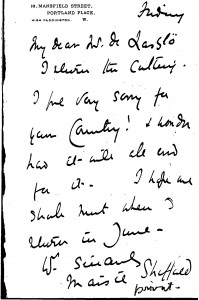 18, MANSFIELD STREET,
PORTLAND PLACE,
W.
Friday
My dear Mr. de László
I return the cutting.
I feel very sorry for
your Country! & wonder
how it will all end
for it. I hope we
shall meet when I
return in June.
Sincerely
Sheffield